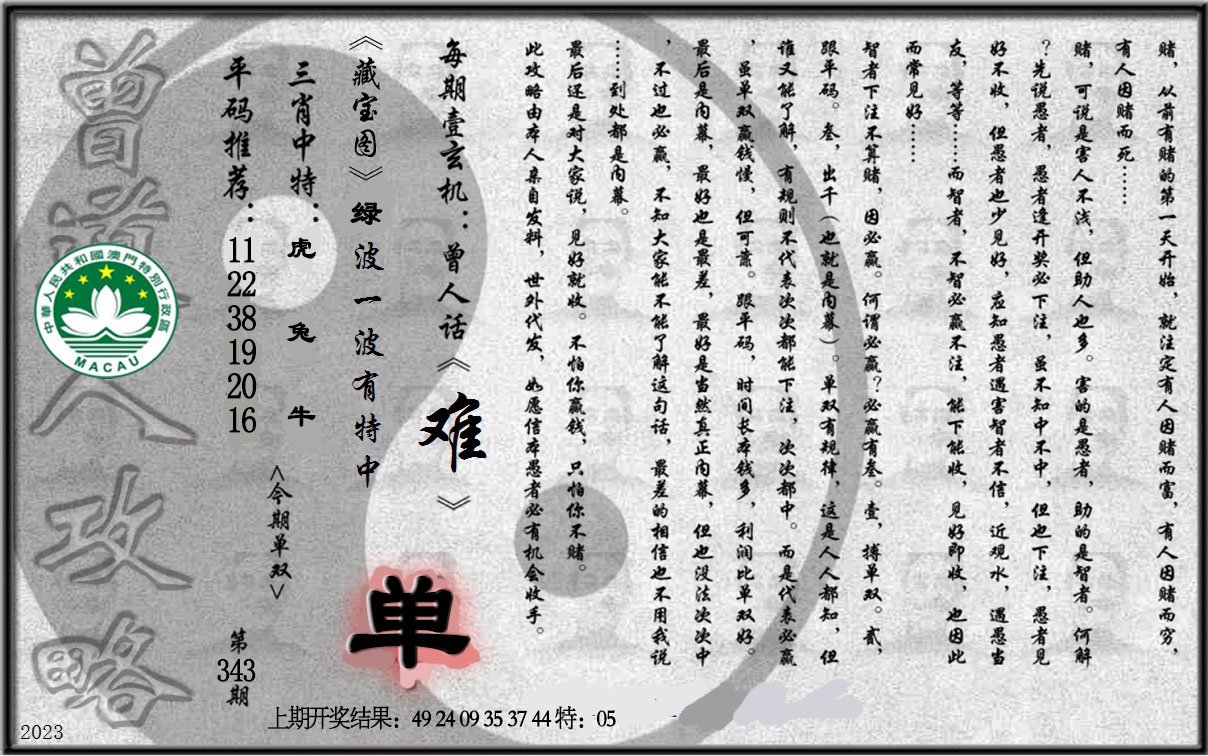 赌，从前有赌的第一天开始，就注定有人因赌而富，有人因赌而穷，
有人因赌而死……
赌，可说是害人不浅，但助人也多。害的是愚者，助的是智者。何解
？先说愚者，愚者逢开奖必下注，虽不知中不中，但也下注，愚者见
好不收，但愚者也少见好，应知愚者遇害智者不信，近观水，遇愚当
友，等等……而智者，不智必赢不注，能下能收，见好即收，也因此
而常见好……
智者下注不算赌，因必赢。何谓必赢？必赢有叁。壹，搏单双。贰，
跟平码。叁，出千（也就是内幕）。单双有规律，这是人人都知，但
谁又能了解，有规则不代表次次都能下注，次次都中。而是代表必赢
，虽单双赢钱慢，但可靠。跟平码，时间长本钱多，利润比单双好。
最后是内幕，最好也是最差，最好是当然真正内幕，但也没法次次中
，不过也必赢，不知大家能不能了解这句话，最差的相信也不用我说
……到处都是内幕。
最后还是对大家说，见好就收。不怕你赢钱，只怕你不赌。
此攻略由本人亲自发料，世外代发，如愿信本愚者必有机会收手。
每期壹玄机：曾人话《难》
《藏宝图》绿波一波有特中
单
三肖中特：虎 兔 牛
<今期单双>
平码推荐：11 22 38 19 20 16
第343期
曾道人攻略
中華人民共和國澳門特別行政區
MACAU
上期开奖结果：49 24 09 35 37 44 特：05
2023